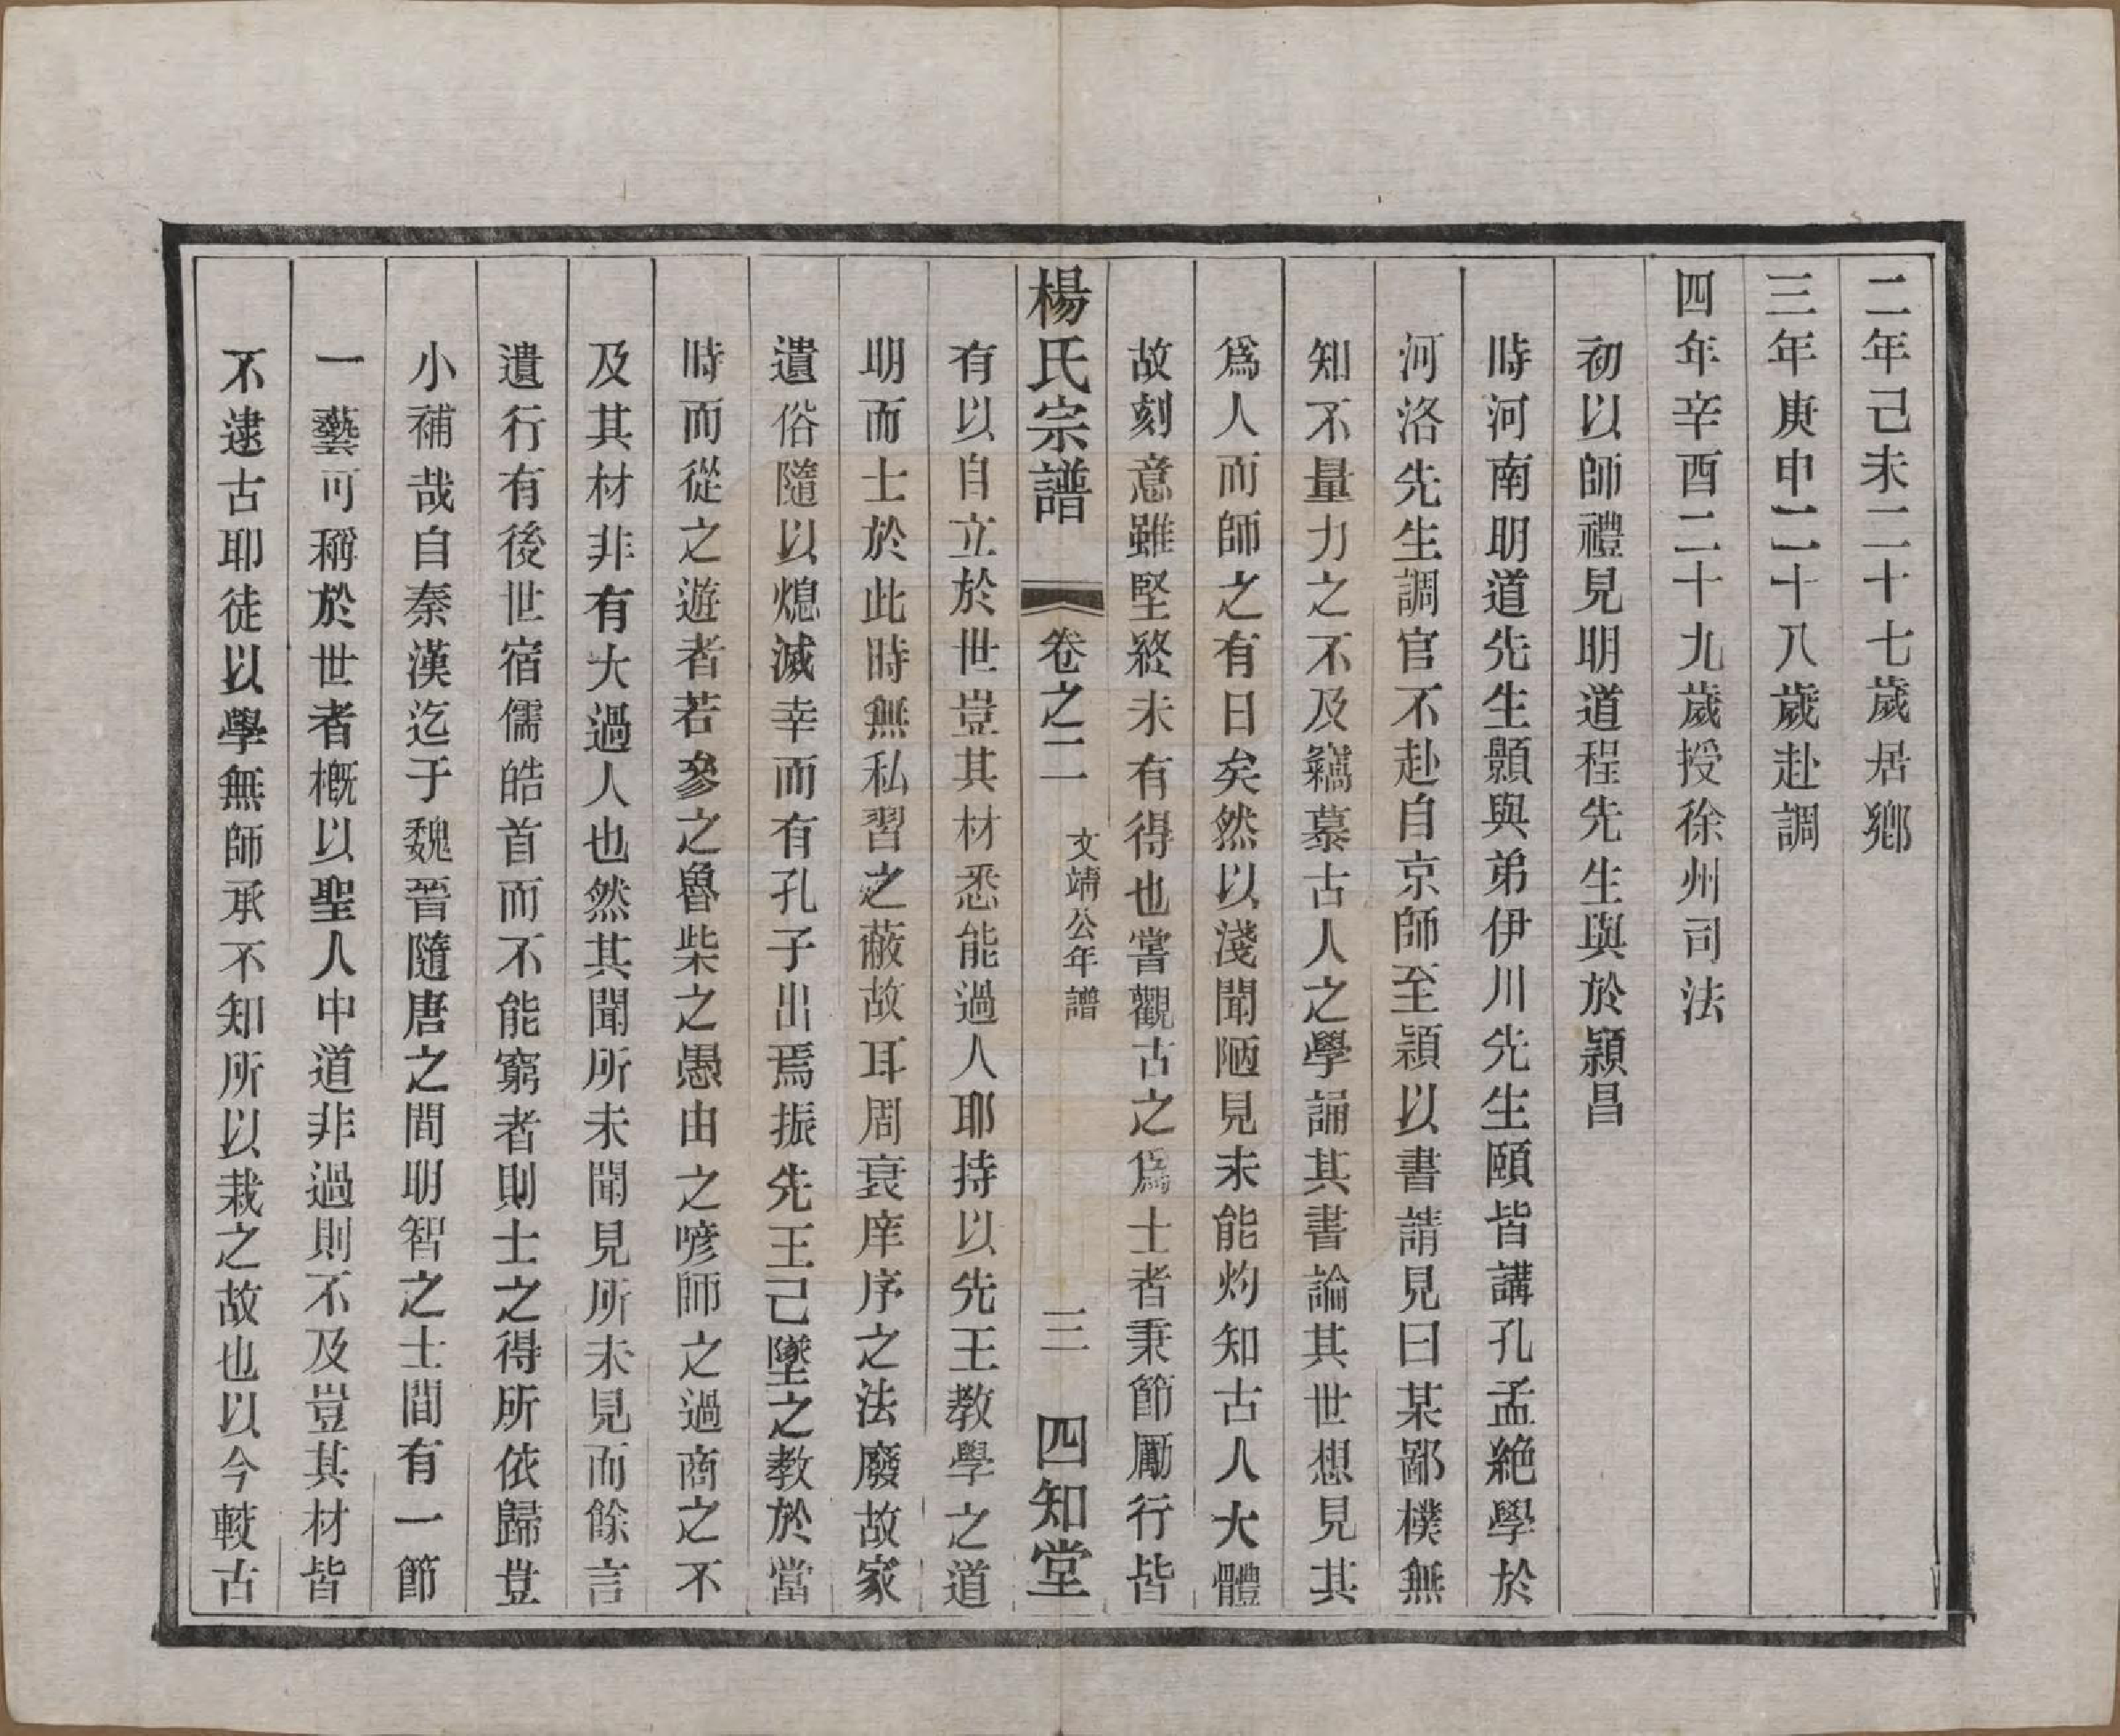 二年己未二十七歲居鄕
三年庚申二十八歲赴調
四年辛酉二十九歲授徐州司法
初以師禮見明道程先生與於潁昌
時河南明道先生顥與弟伊川先生頤皆講孔孟絶學於
河洛先生調官不赴自京師至潁以書請見曰某鄙樸無
知不量力之不及竊慕古人之學誦其書論其世想見其
爲人而師之有日矣然以淺聞陋見未能灼知古人大體
故刻意雖堅終未有得也嘗觀古之爲士者秉節勵行皆
楊氏宗譜 卷之二 文靖公年譜 三 四知堂
有以自立於世豈其材悉能過人耶持以先王教學之道
明而士於此時無私習之蔽故耳周衰庠序之法廢故家
遺俗隨以熄滅幸而有孔子出焉振先王己墜之教於當
時而從之遊者若參之魯柴之愚由之喭師之過商之不
及其材非有大過人也然其聞所未聞見所未見而餘言
遺行有後世宿儒皓首而不能窮者則士之得所依歸豈
小補哉自秦漢迄于魏晉隨唐之間明智之士間有一節
一藝可稱於世者槪以聖人中道非過則不及豈其材皆
不逮古耶徒以學無師承不知所以栽之故也以今較古